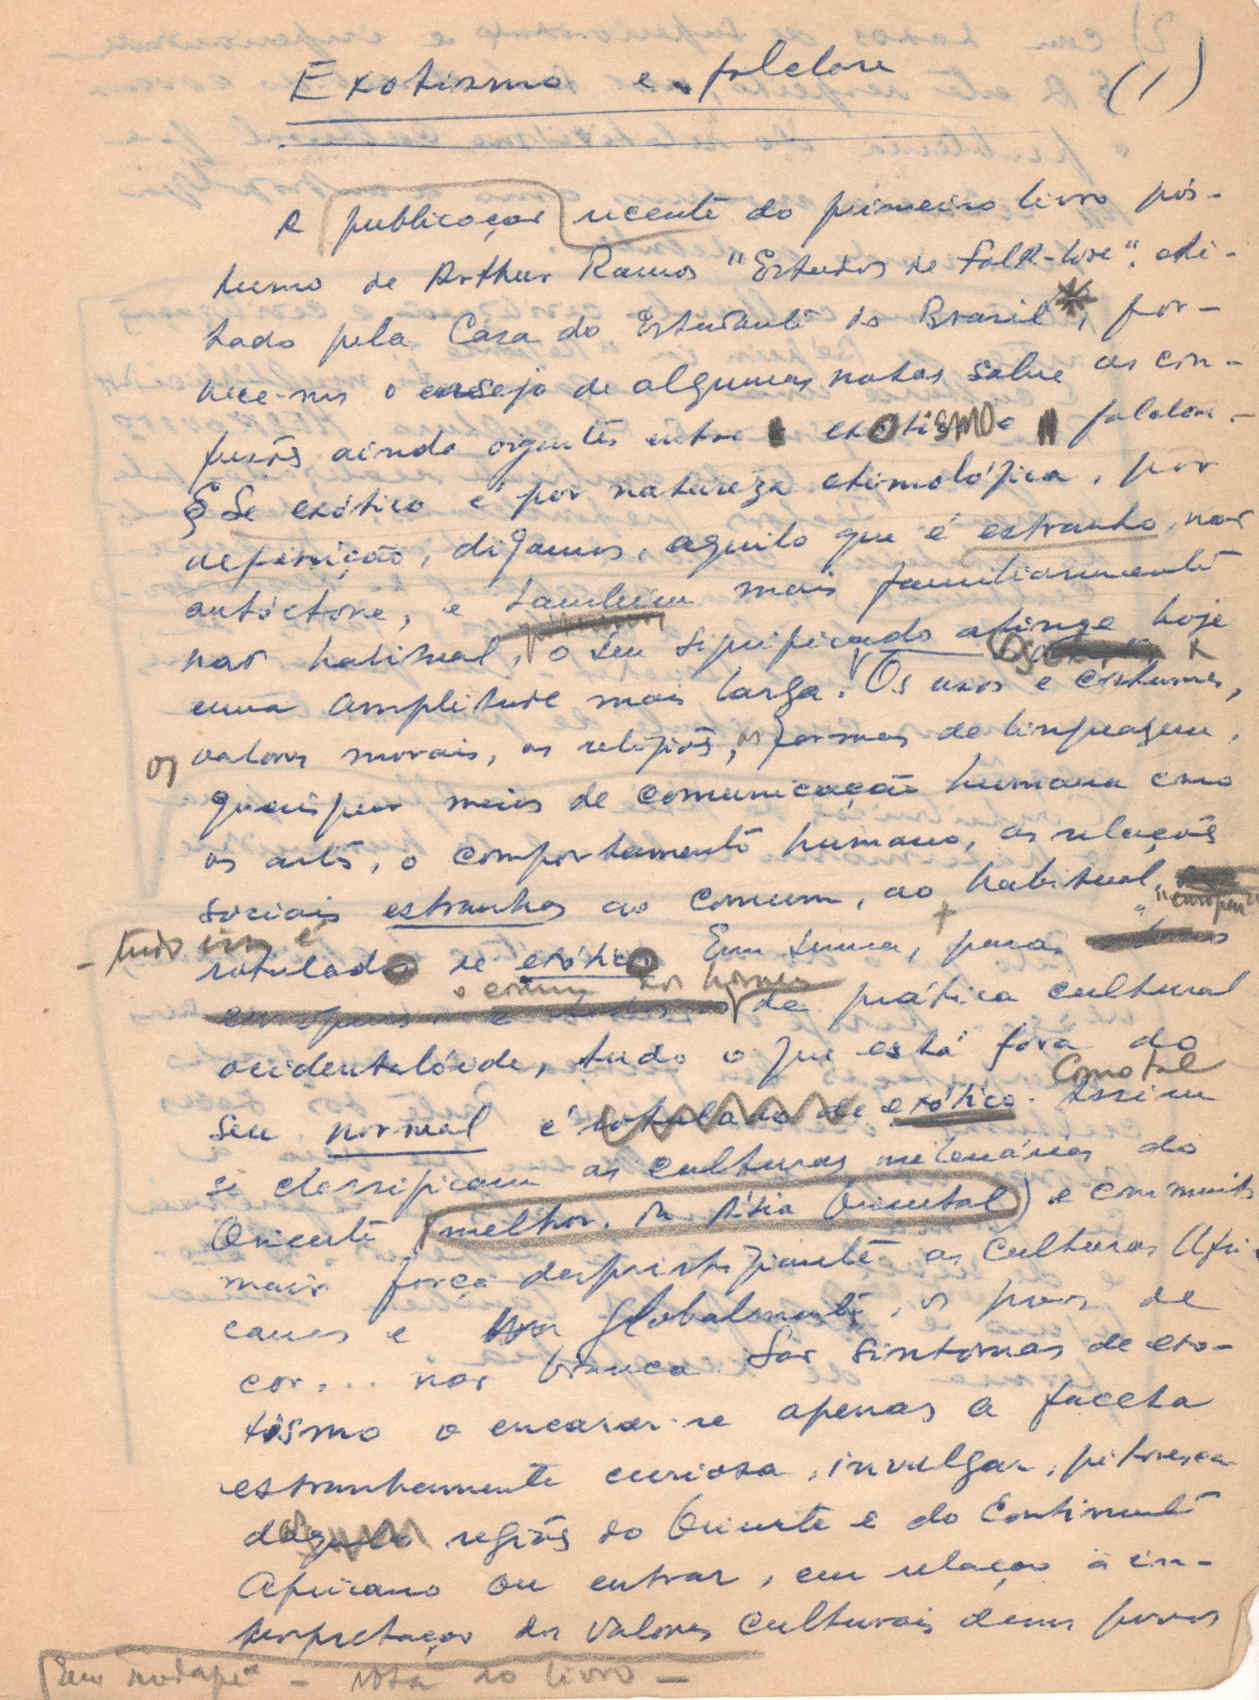 Exotismo e folclore (1)
A publicação recente do primeiro livro pós-
tumo de Arthur Ramos "Estudos de Folk-lore", edi-
tado pela Casa do Estudante do Brasil*, for-
nece-nos o ensejo de algumas notas sobre as con-
fusões ainda vigentes entre exotismo e folclore.
§ Se exótico é por natureza etimológica, por
definição, digamos, aquilo que é estranho, não
autóctone, e também mais familiarmente
não habitual, o seu significado atinge hoje
uma amplitude mais larga. Os usos e costumes,
os valores morais, as religiões, as formas de linguagem,
quaisquer meios de comunicação humana como
as artes, o comportamento humano, as relações
sociais estranhas ao comum, ao habitual, "europeu"
- tudo isso é
rotulado de exótico. Em suma, para
o comum dos homens
de prática cultural
ocidentalóide, tudo o que está fora do
como tal
seu normal é rotulado de exótico. Assim
se classificam as culturas milenárias do
Oriente (melhor, da Ásia Oriental) e com muito
mais força desprestigiante as culturas Afri-
canas e globalmente, os povos de
cor... não branca. São sintomas de exo-
tismo o encarar-se apenas a faceta
estranhamente curiosa, invulgar, pitoresca
das regiões do Oriente e do Continente
Africano ou entrar, em relação à in-
terpretação dos valores culturais desses povos
Em rodapé - nota do livro -